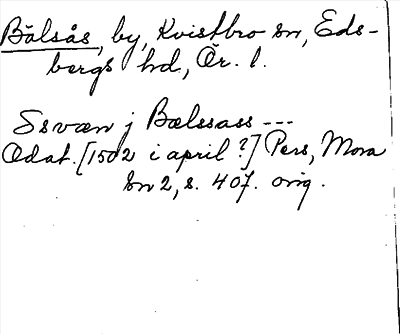 Bälsås, by, Kvistbro sn, Eds-
bergs hd, Ör. l.
Ssvæn j Bælssass ---
Odat. [1502 i april ?] Pers, Mora
sn 2, s. 407. orig.